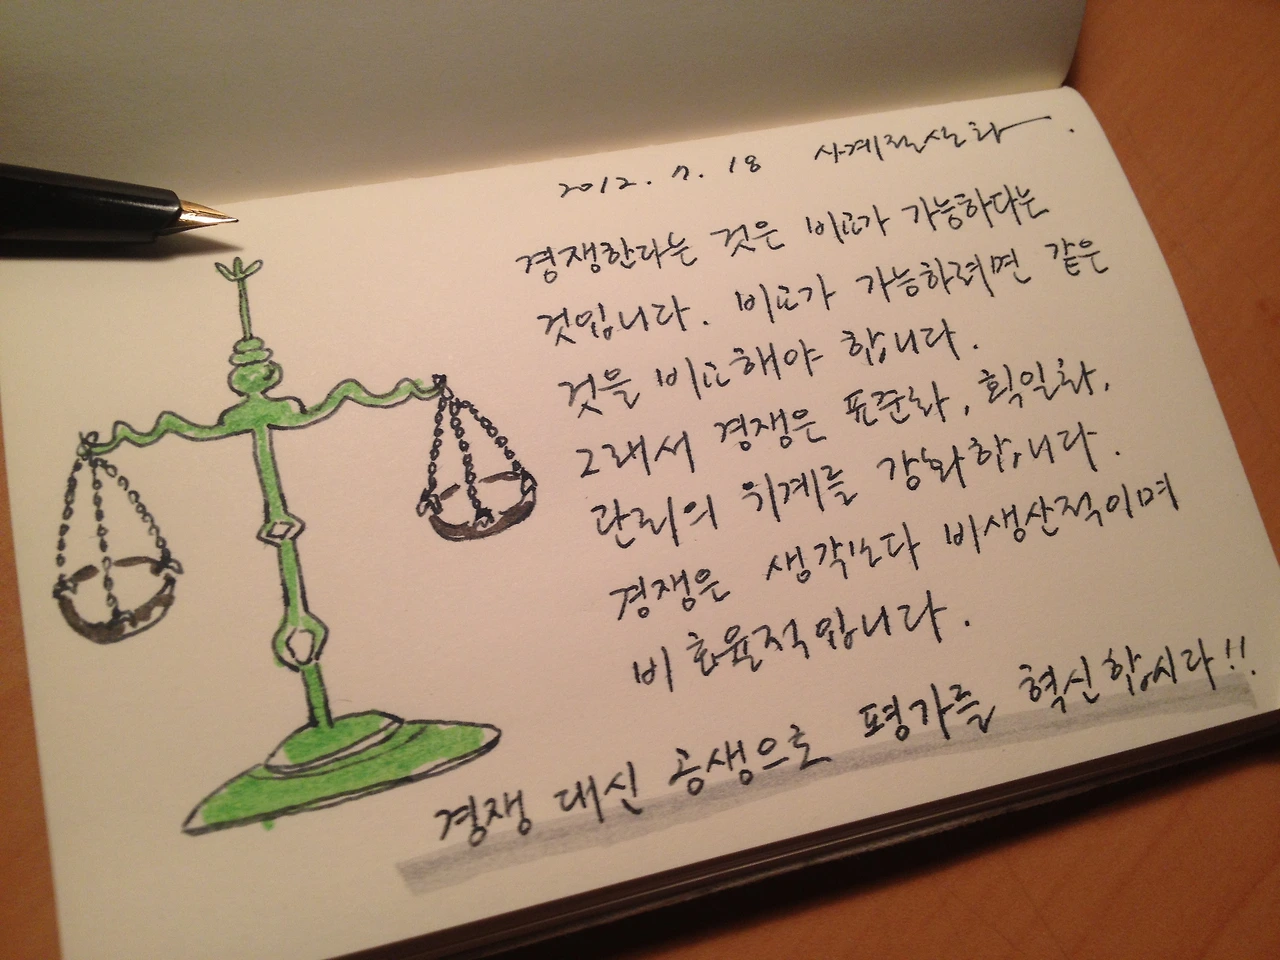 2012. 7. 18 사계절산화
경쟁한다는 것은 비교가 가능하다는
것입니다. 비교가 가능하려면 같은
것을 비교해야 합니다.
그래서 경쟁은 표준화, 획일화,
관리의 위계를 강화합니다.
경쟁은 생각보다 비생산적이며
비효율적입니다.
경쟁 대신 공생으로 평가를 혁신합시다!!